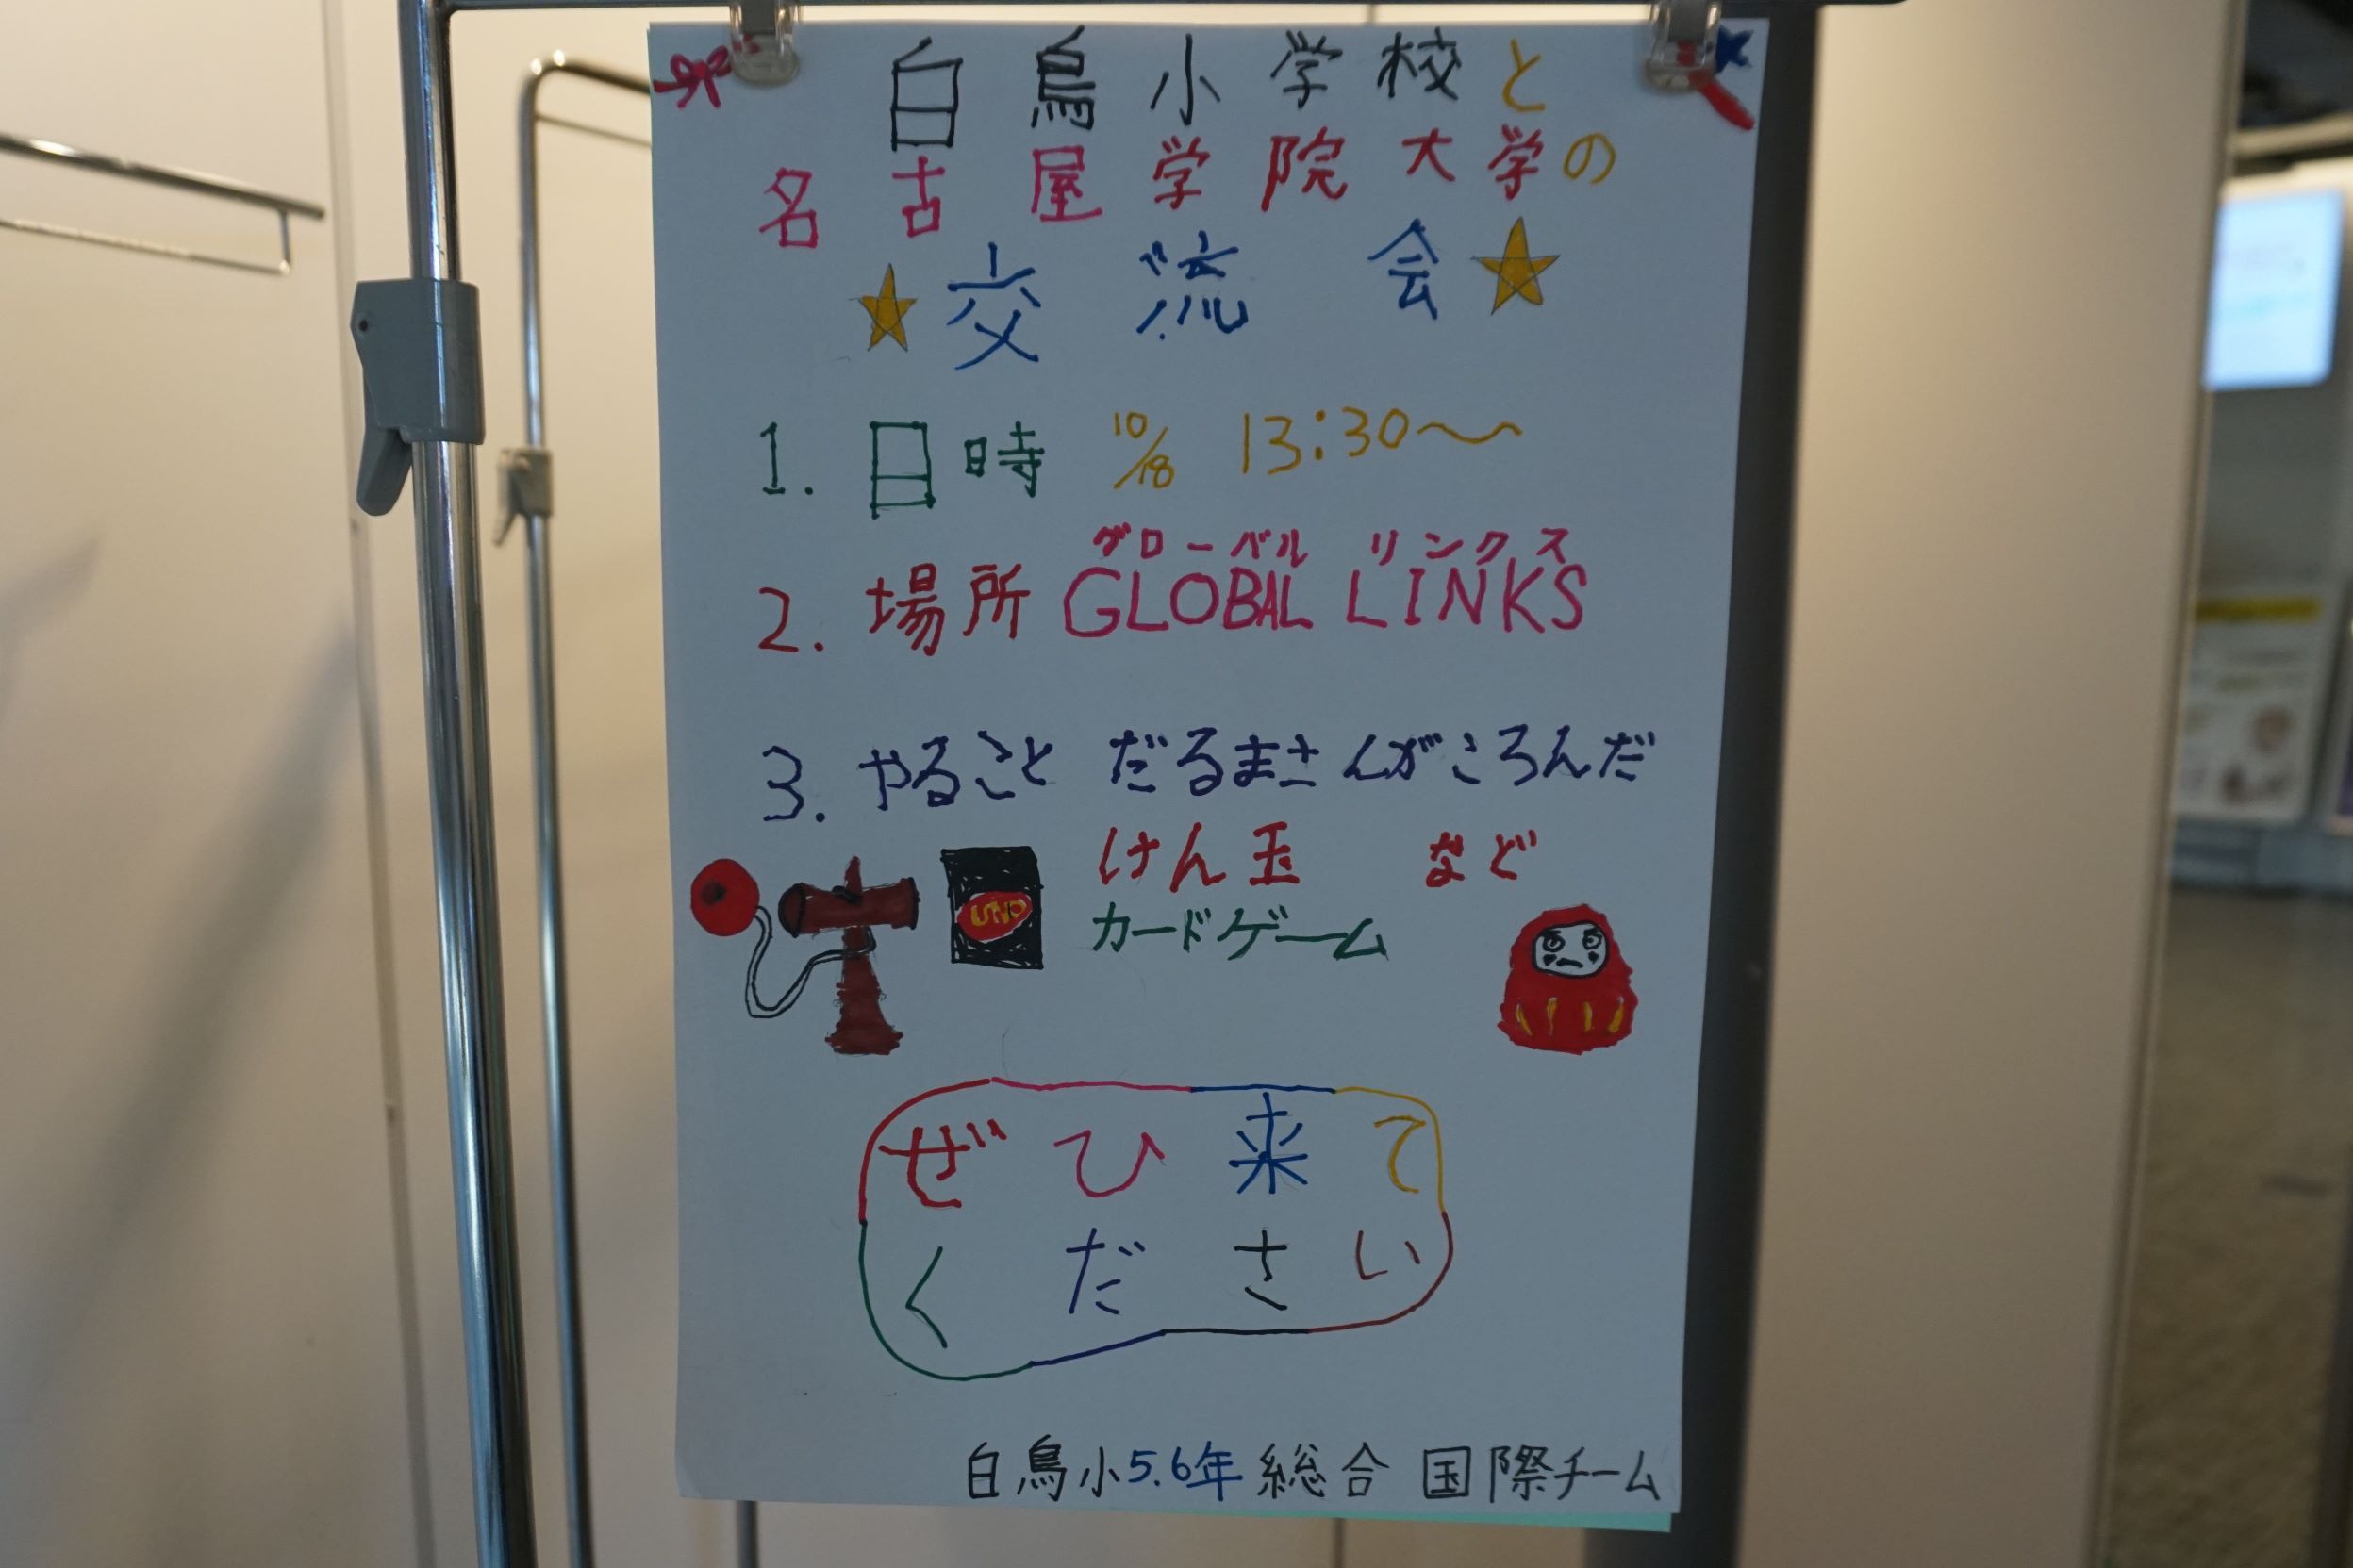 白鳥小学校と
名古屋学院大学の
★交流会★
1. 日時 10/18 13:30〜
グローバル リンクス
2. 場所 GLOBAL LINKS
3. やること だるまさんがころんだ
けん玉 など
カードゲーム
UNO
ぜひ来て
ください
白鳥小5.6年 総合 国際チーム